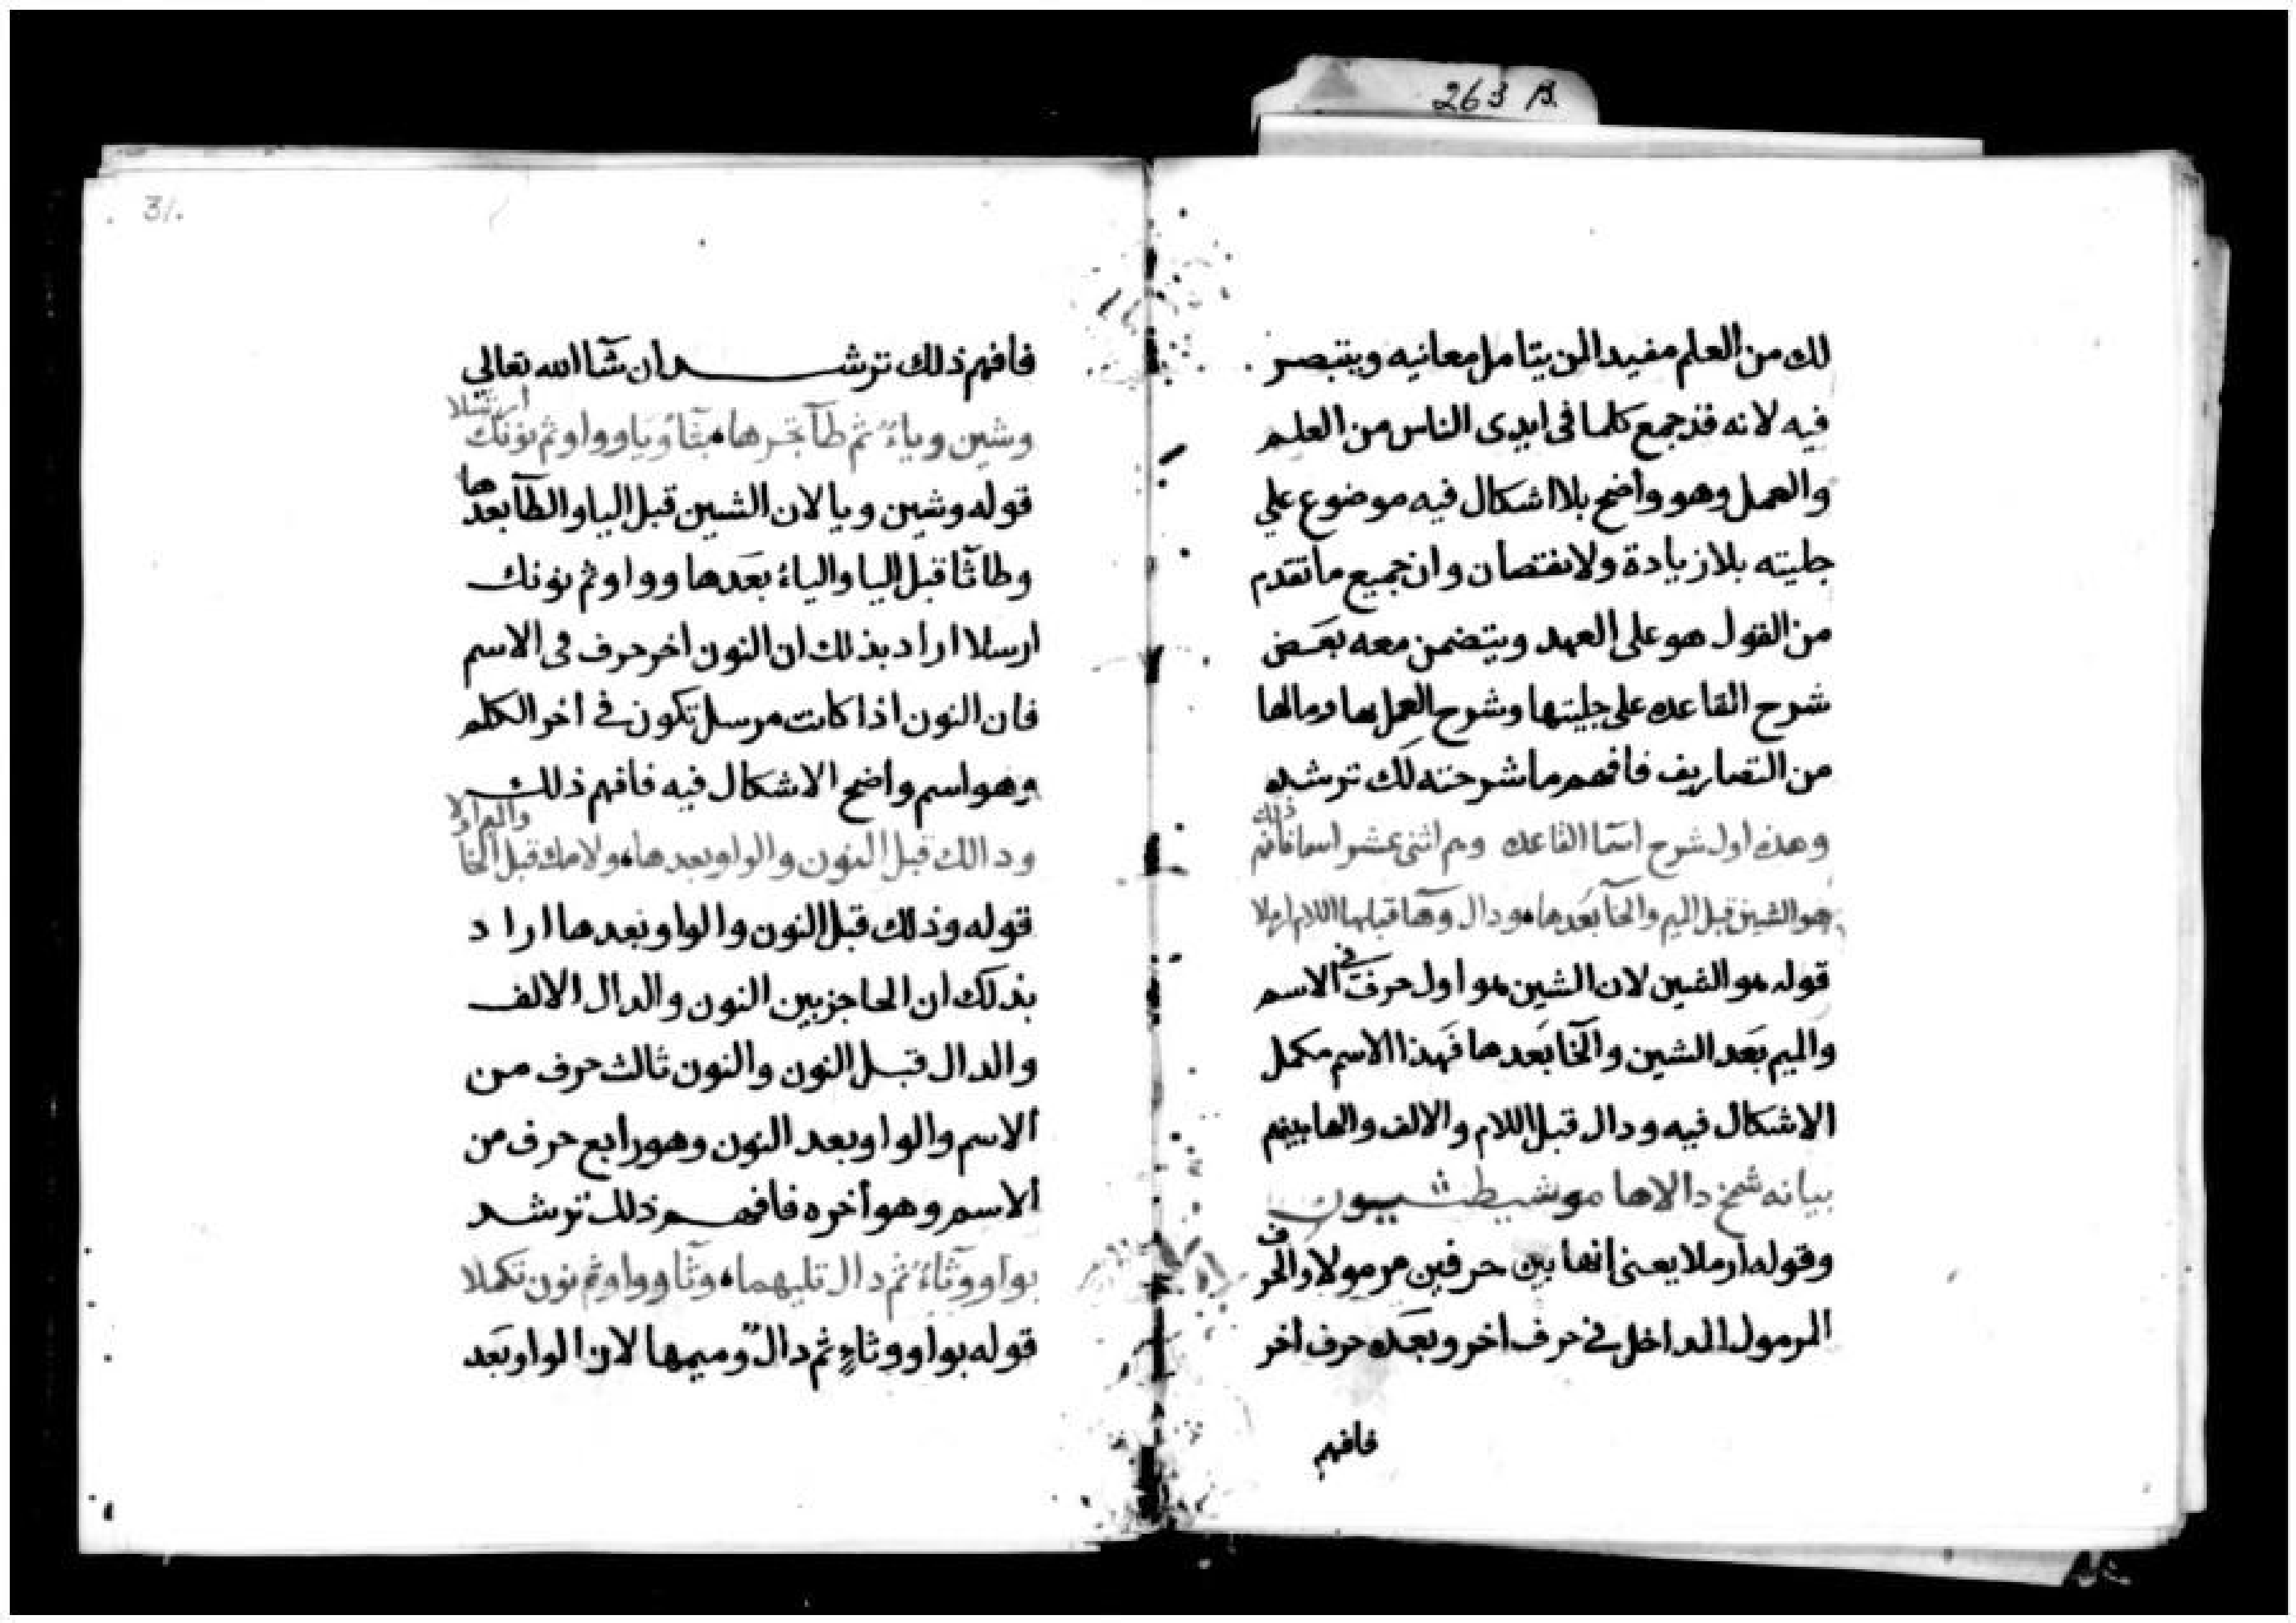 263 B.
لك من العلم مفيد المن يتامل معانيه ويتبصر
فيه لانه قد جمع كلما فى ايدى الناس من العلم
والعمل وهو واضح بلا اشكال فيه موضوع علي
جليته بلا زيادة ولا نقصان وان جميع ما تقدم
من القول هو على العهد ويتضمن معه بعض
شرح القاعده على جليتها وشرح العمل بها ومالها
من التصاريف فافهم ما شرحته لك ترشد
وهذه اول شرح اسما القاعده وهم اثنى عشر اسما فافهم ذلك
هو الشين قبل الميم والخا بعدها ودال وها قبلها اللام ارملا
قوله هو الشين لان الشين هو اول حرف في الاسم
والميم بعد الشين والخا بعدها فهذا الاسم مكمل
الاشكال فيه ودال قبل اللام والالف والها بينهم
بيانه شمخ دالاها مو شيطثييون
وقوله ارملا يعنى انها بين حرفين مرمولا والحرف
المرمول الداخل في حرف اخر وبعده حرف اخر
فافهم
31.
فافهم ذلك ترشد ان شآ الله تعالي
وشين وياء ثم طآ تجرها بثآ ويا وواو ثم نونك ارسلا
قوله وشين ويا لان الشين قبل اليا والطآ بعدها
وطا ثآ قبل اليا والياء بعدها وواو ثم نونك
ارسلا اراد بذلك ان النون اخر حرف فى الاسم
فان النون اذا كانت مرسل تكون في اخر الكلم
وهو اسم واضح الاشكال فيه فافهم ذلك
ودالك قبل النون والواو بعدها ولامك قبل الخا
قوله وذلك قبل النون والواو بعدها اراد
بذلك ان الحاجز بين النون والدال الالف
والدال قبل النون والنون ثالث حرف من
الاسم والواو بعد النون وهو رابع حرف من
الاسم وهو أخره فافهم ذلك ترشد
بواو وثاء ثم دال تليهما وثا وواو ثم نون تكملا
قوله بواو وثاء ثم دال وميمها لان الواو بعد